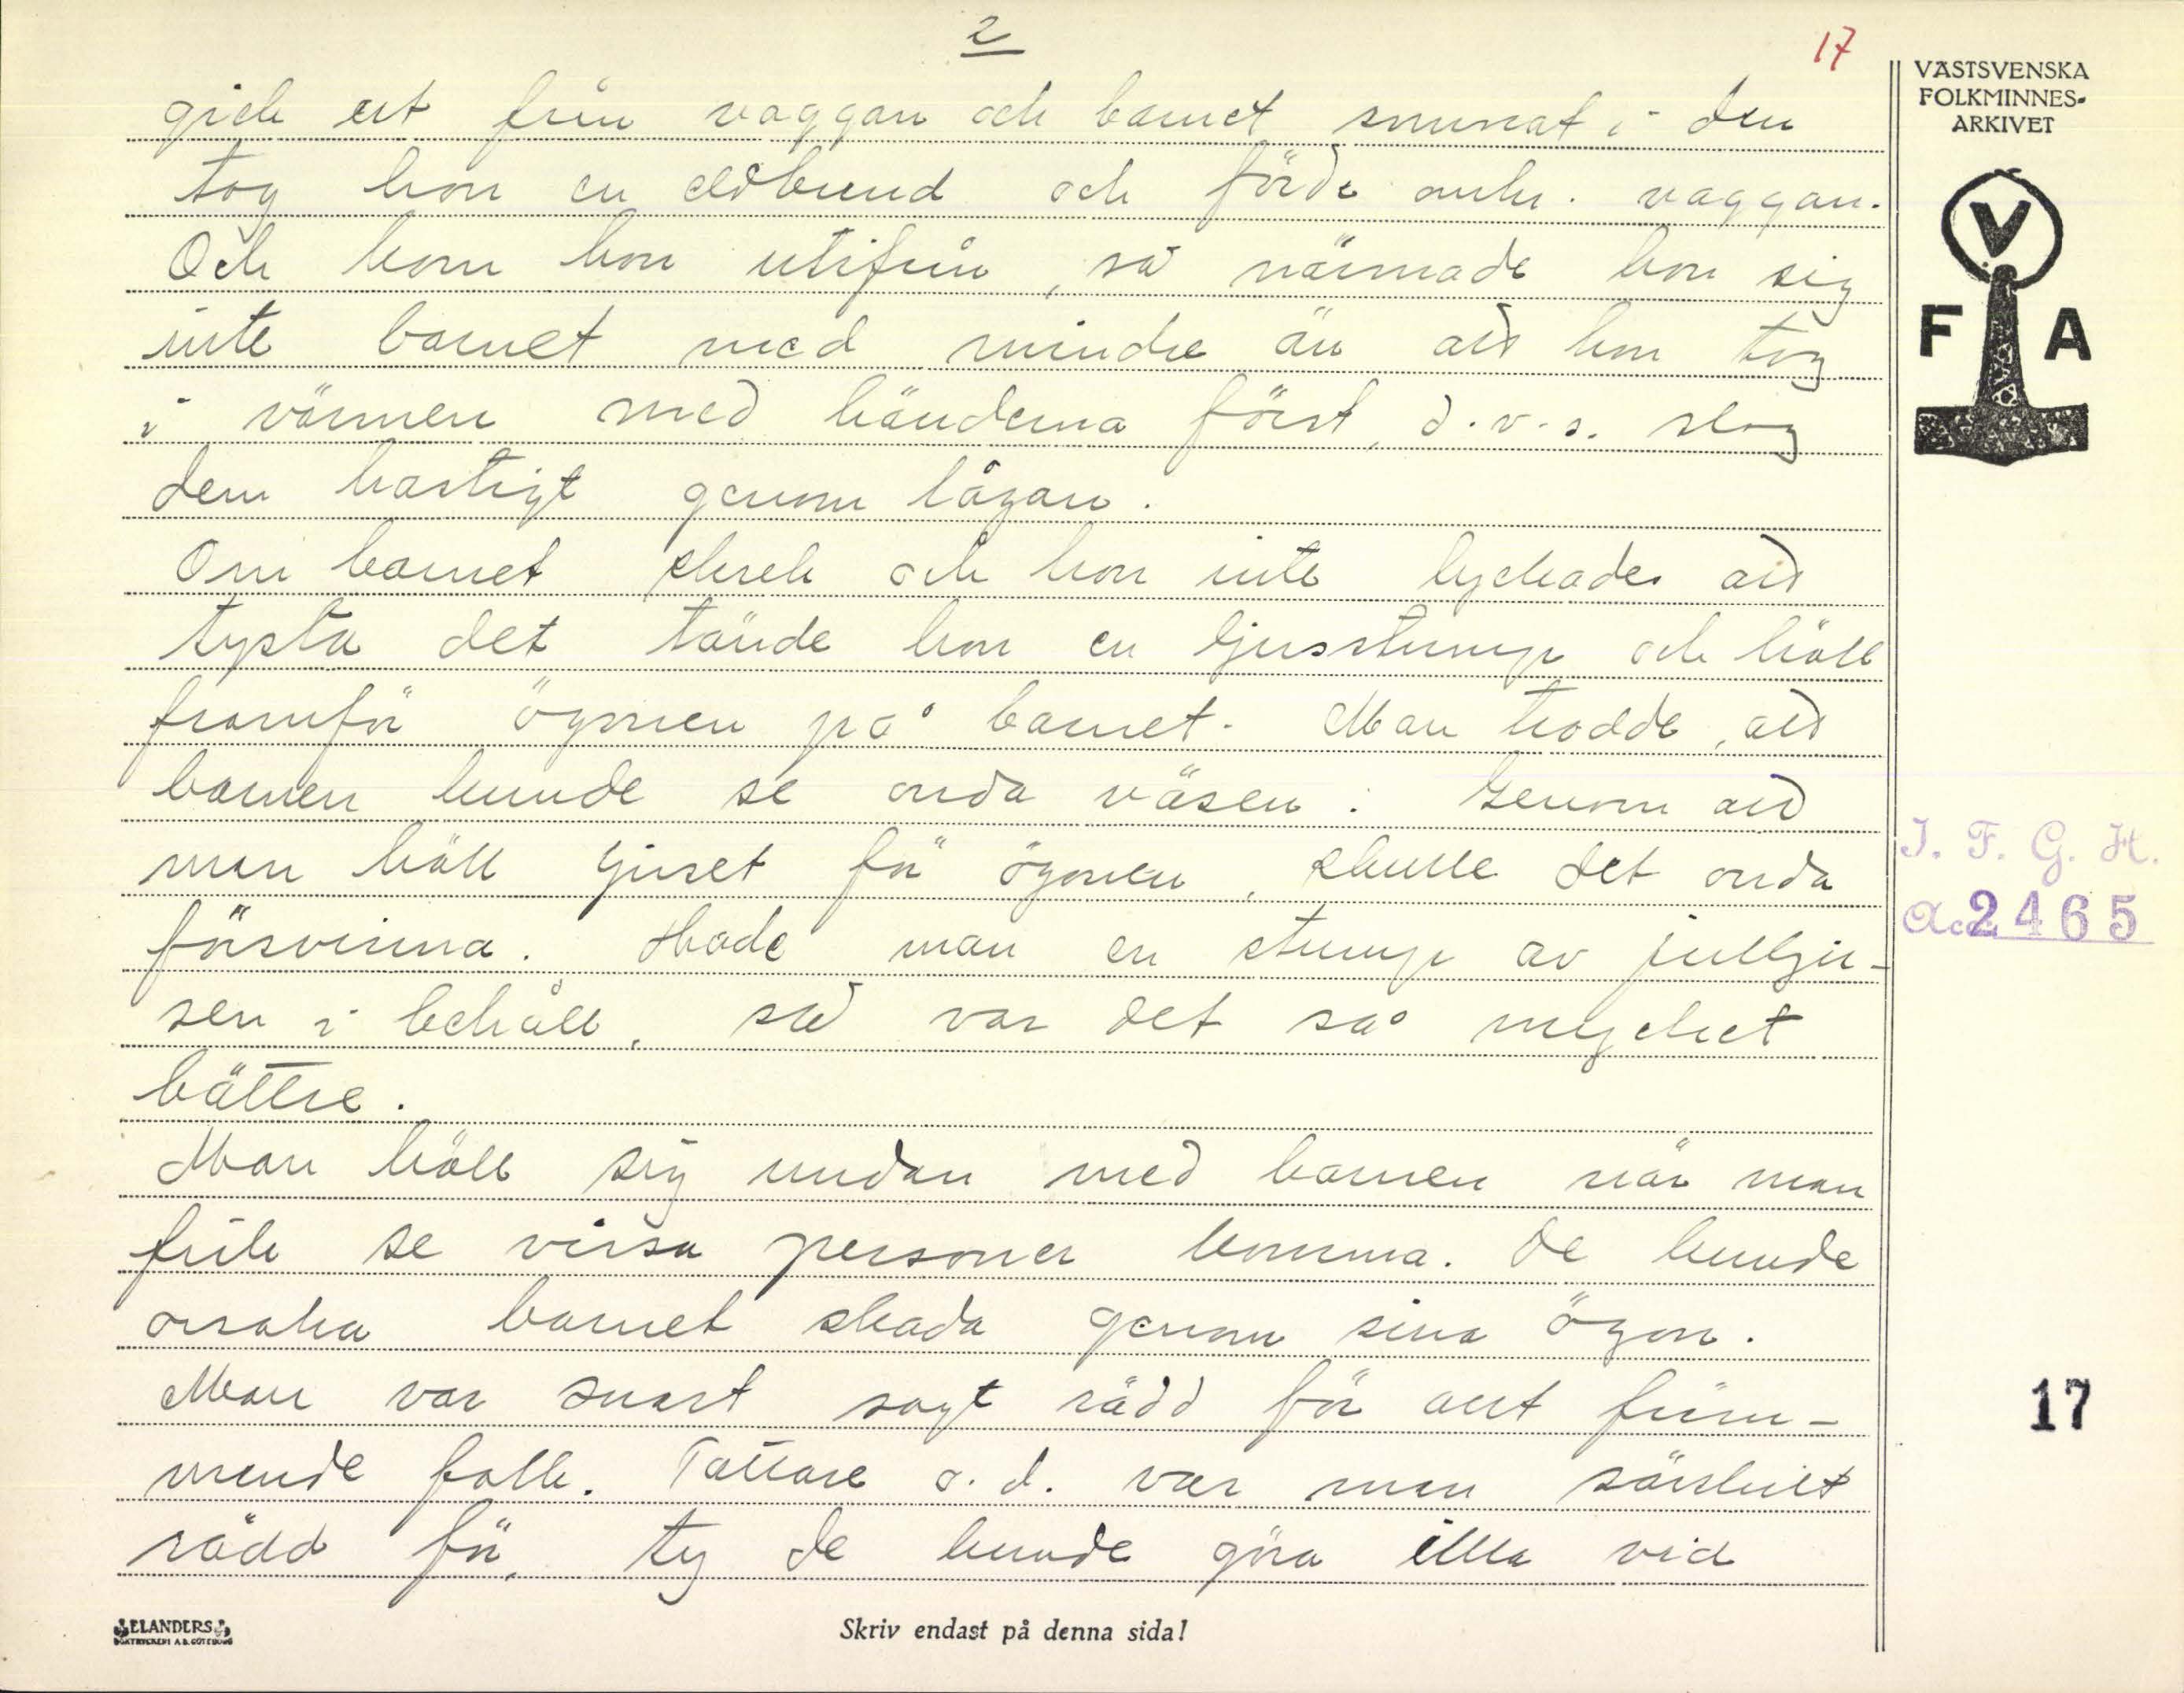 2
17
gick ut från vaggan och barnet somnat i den
tog hon en eldbrand och förde omkr. vaggan.
Och kom hon utifrån, så närmade hon sig
inte barnet med mindre än att hon tog
i värmen med händerna först, d.v.s. slog
dem hastigt genom lågan.
Om barnet skrek och hon inte lyckades att
tysta det tände hon en ljusstump och höll
framför ögonen på barnet. Man trodde, att
barnen kunde se onda väsen. Genom att
man höll ljuset för ögonen, skulle det onda
försvinna. Hade man en stump av jullju-
sen i behåll, så var det så mycket
bättre.
Man höll sig undan med barnen när man
fick se vissa personer komma. De kunde
orsaka barnet skada genom sina ögon.
Man var snart sagt rädd för allt främ-
mende folk. Tattare o.d. var man särskilt
rädd för, ty de kunde göra illa vid
VÄSTSVENSKA
FOLKMINNES-
ARKIVET
V
F A
I. F. G. H.
Acc. 2465
17
ELANDERS
BOKTRYCKERI A.B. GÖTEBORG
Skriv endast på denna sida!